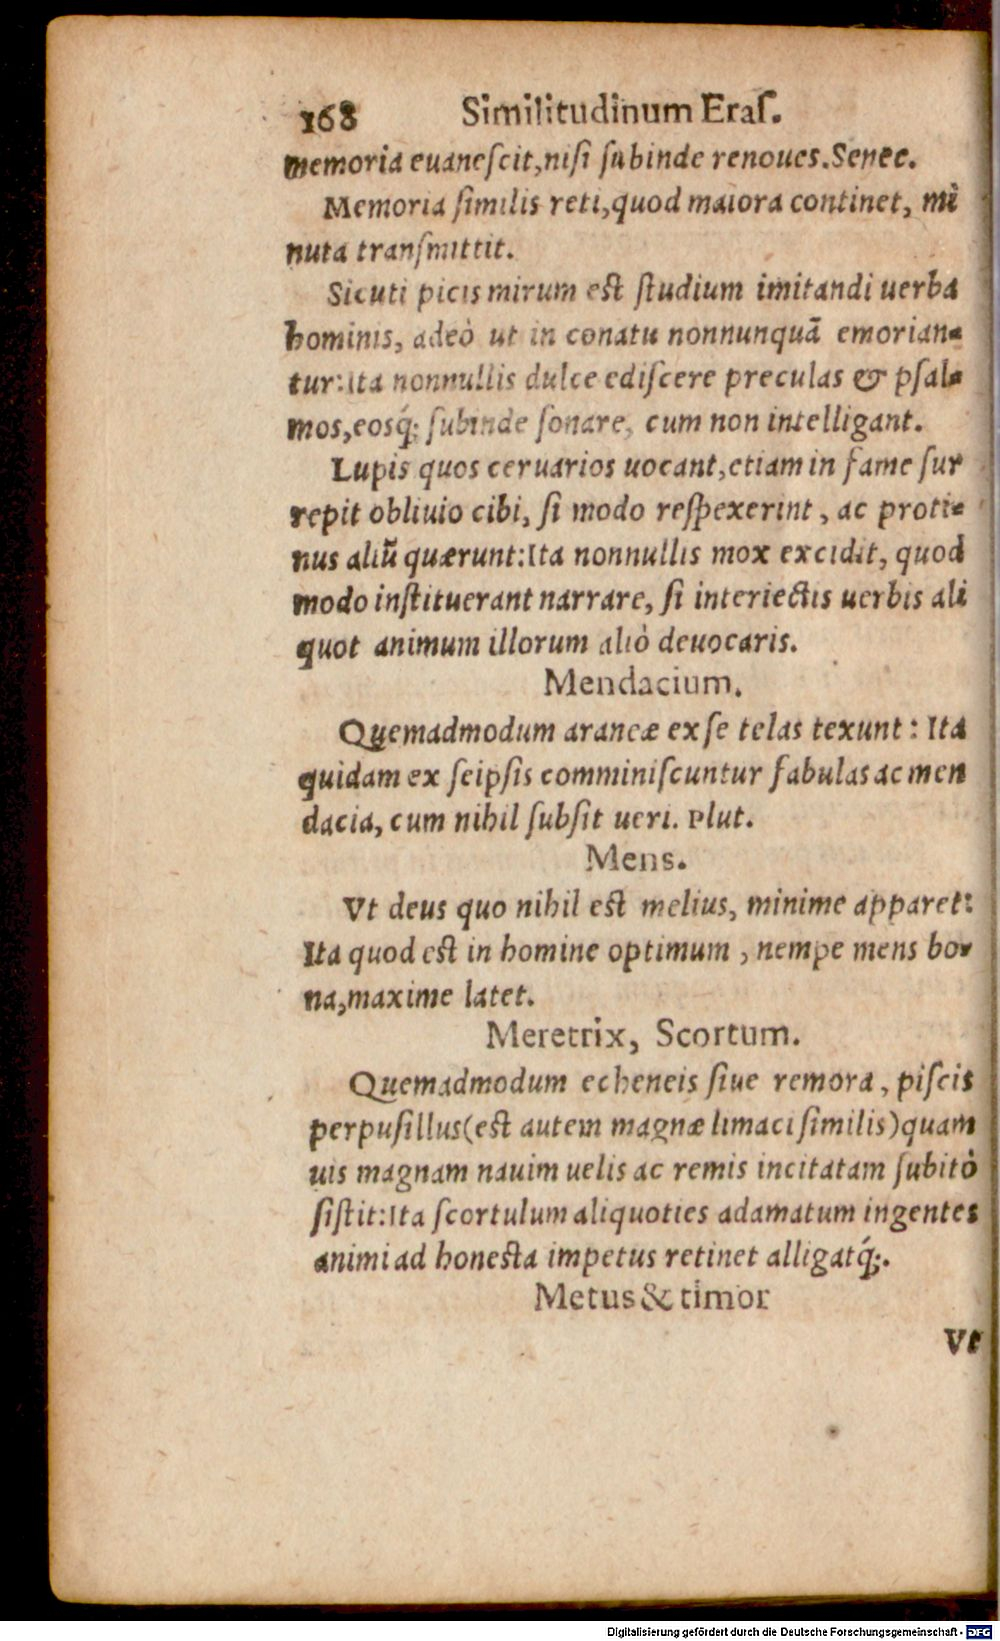 168 Similitudinum Eraſ.
memoria euaneſcit, niſi ſubinde renoues. Senec.
Memoria ſimilis reti, quod maiora continet, mi
nuta tranſmittit.
Sicuti picis mirum eſt ſtudium imitandi uerba
hominis, adeò ut in conatu nonnunquã emorian-
tur: Ita nonnullis dulce ediſcere preculas & pſal-
mos, eosq́; ſubinde ſonare, cum non intelligant.
Lupis quos ceruarios uocant, etiam in fame ſur
repit obliuio cibi, ſi modo reſpexerint, ac proti-
nus aliũ quærunt: Ita nonnullis mox excidit, quod
modo inſtituerant narrare, ſi interiectis uerbis ali
quot animum illorum aliò deuocaris.
Mendacium.
Quemadmodum araneæ ex ſe telas texunt: Ita
quidam ex ſeipſis comminiſcuntur fabulas ac men
dacia, cum nihil ſubſit ueri. Plut.
Mens.
Vt deus quo nihil eſt melius, minime apparet:
Ita quod eſt in homine optimum, nempe mens bo-
na, maxime latet.
Meretrix, Scortum.
Quemadmodum echeneis ſiue remora, piſcis
perpuſillus (eſt autem magnæ limaci ſimilis) quam
uis magnam nauim uelis ac remis incitatam ſubitò
ſiſtit: Ita ſcortulum aliquoties adamatum ingentes
animi ad honeſta impetus retinet alligatq́;.
Metus & timor
Vt
Digitalisierung gefördert durch die Deutsche Forschungsgemeinschaft - DFG